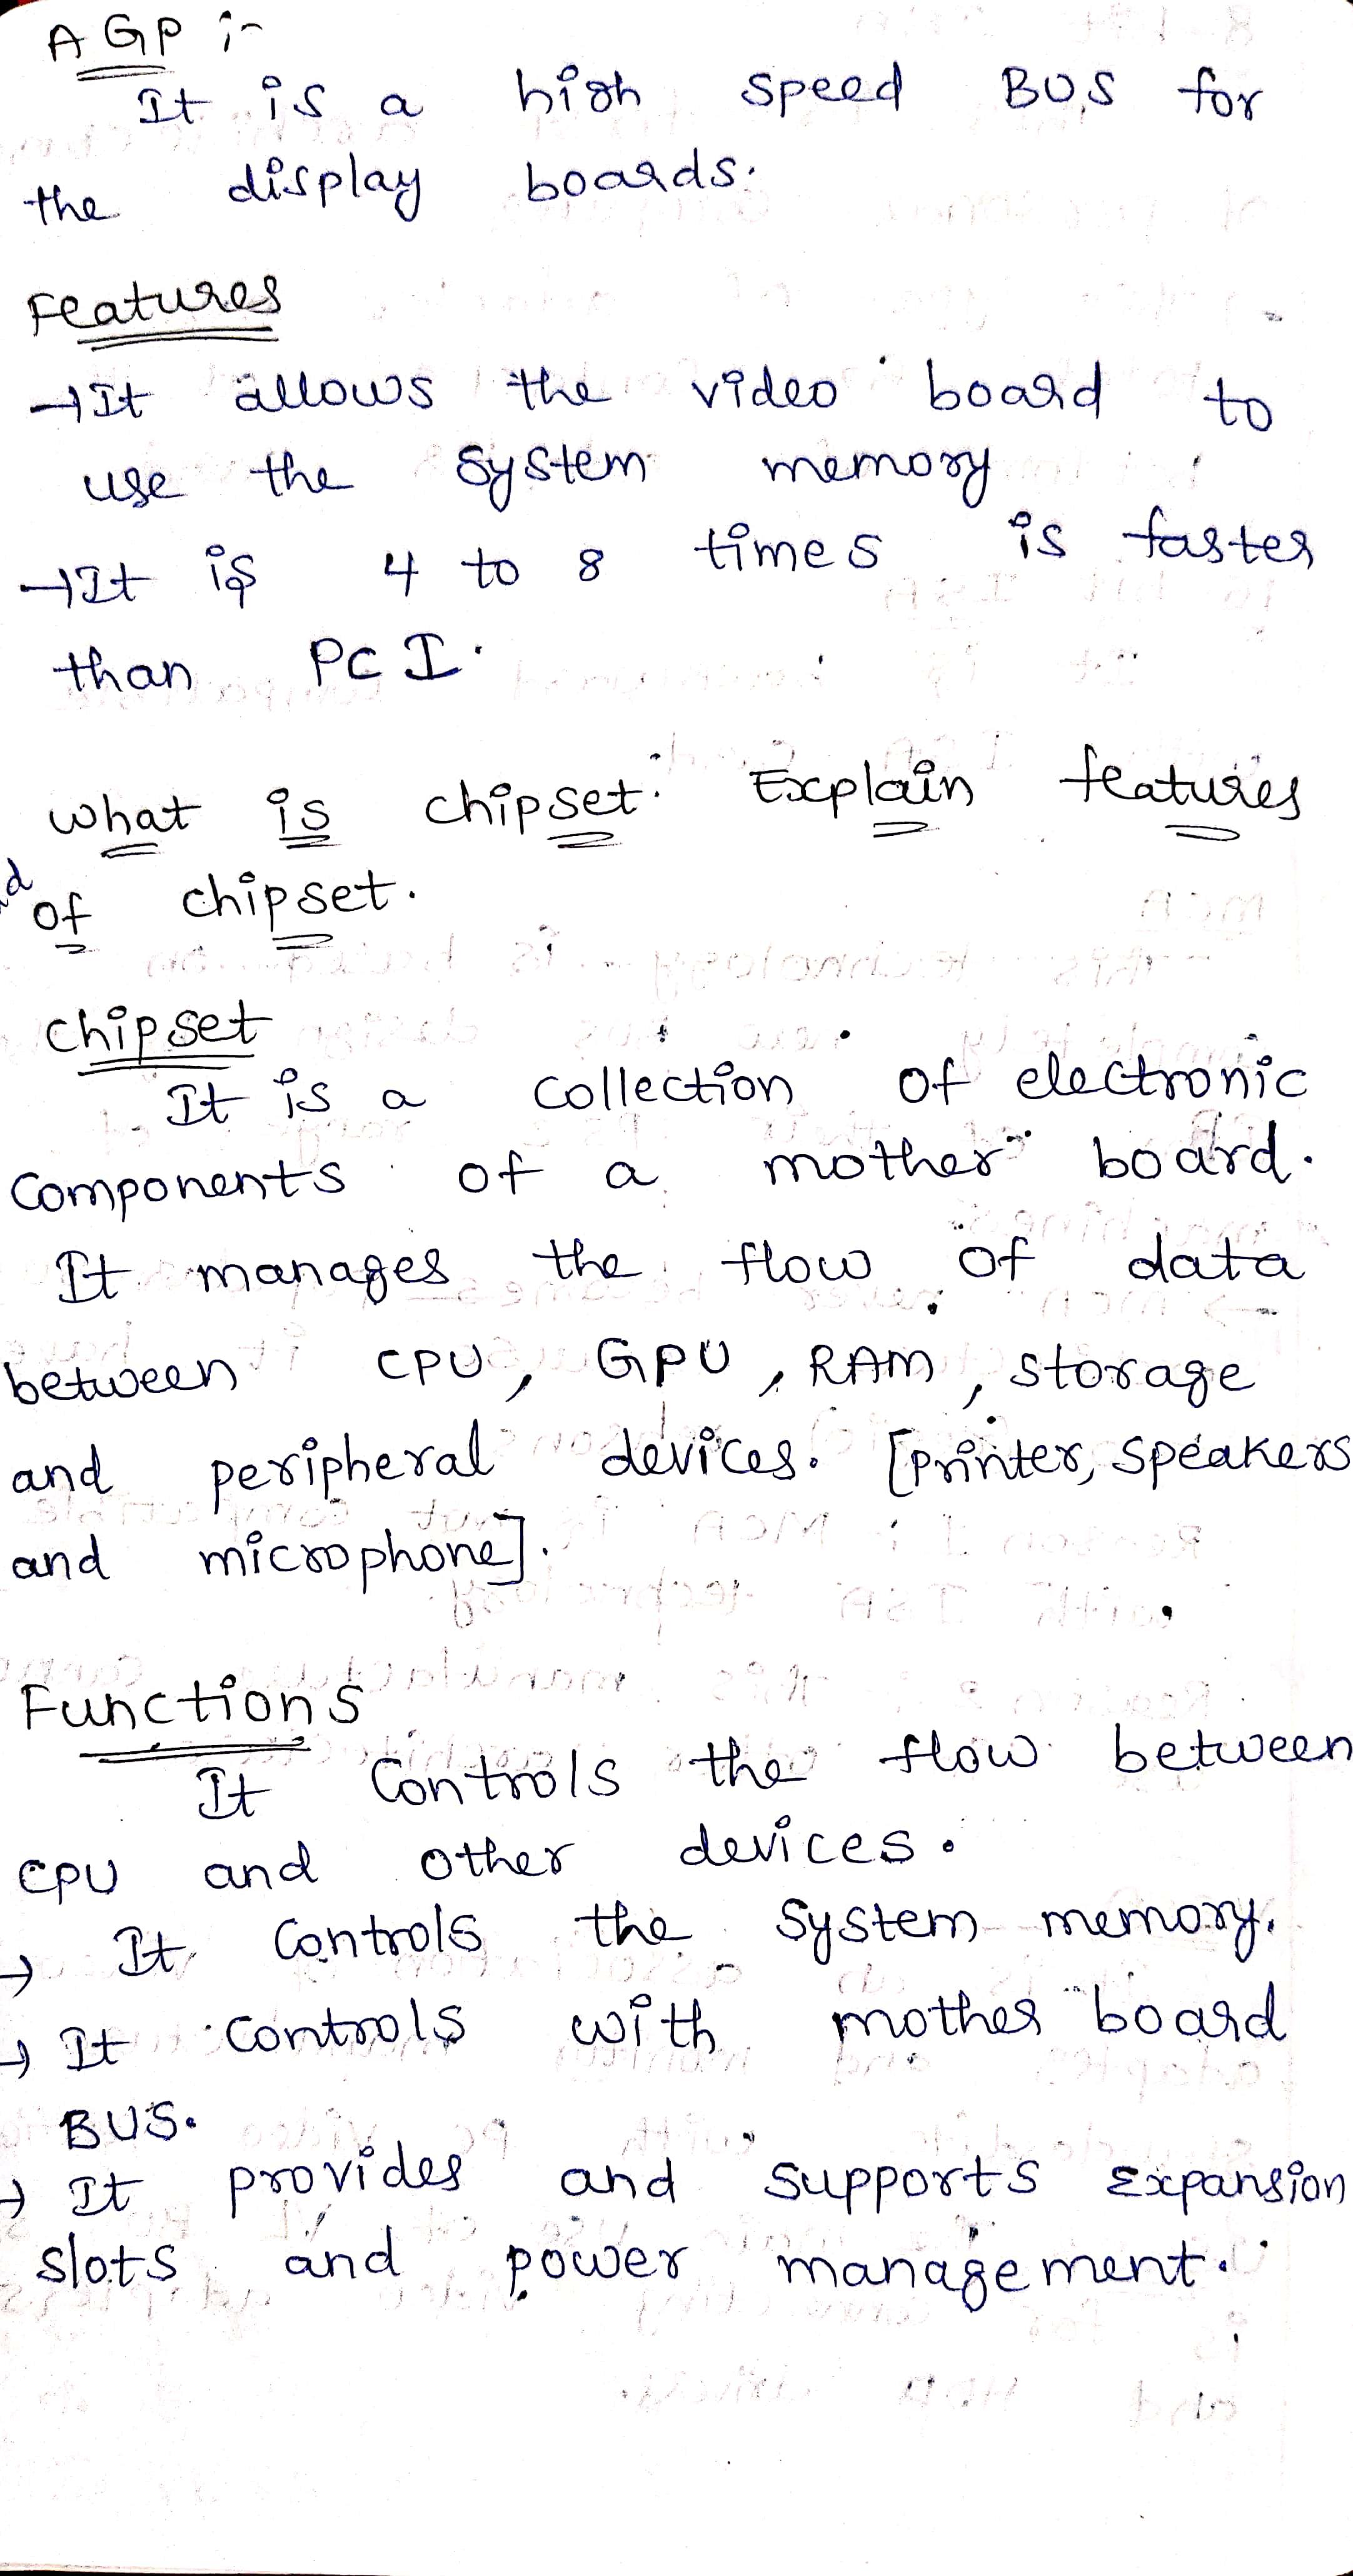 AGP :-
It is a high speed BUS for
the display boards.
Features
→It allows the video board to
use the system memory
→It is 4 to 8 times is faster
than PCI.
what is chipset. Explain features
of chipset.
chipset
It is a collection of electronic
components of a mother board.
It manages the flow of data
between CPU, GPU, RAM, storage
and peripheral devices. [printer, speakers
and microphone].
Functions
It controls the flow between
CPU and other devices.
→ It controls the system memory.
→ It controls with mother board
BUS.
→ It provides and supports Expansion
slots and power management.